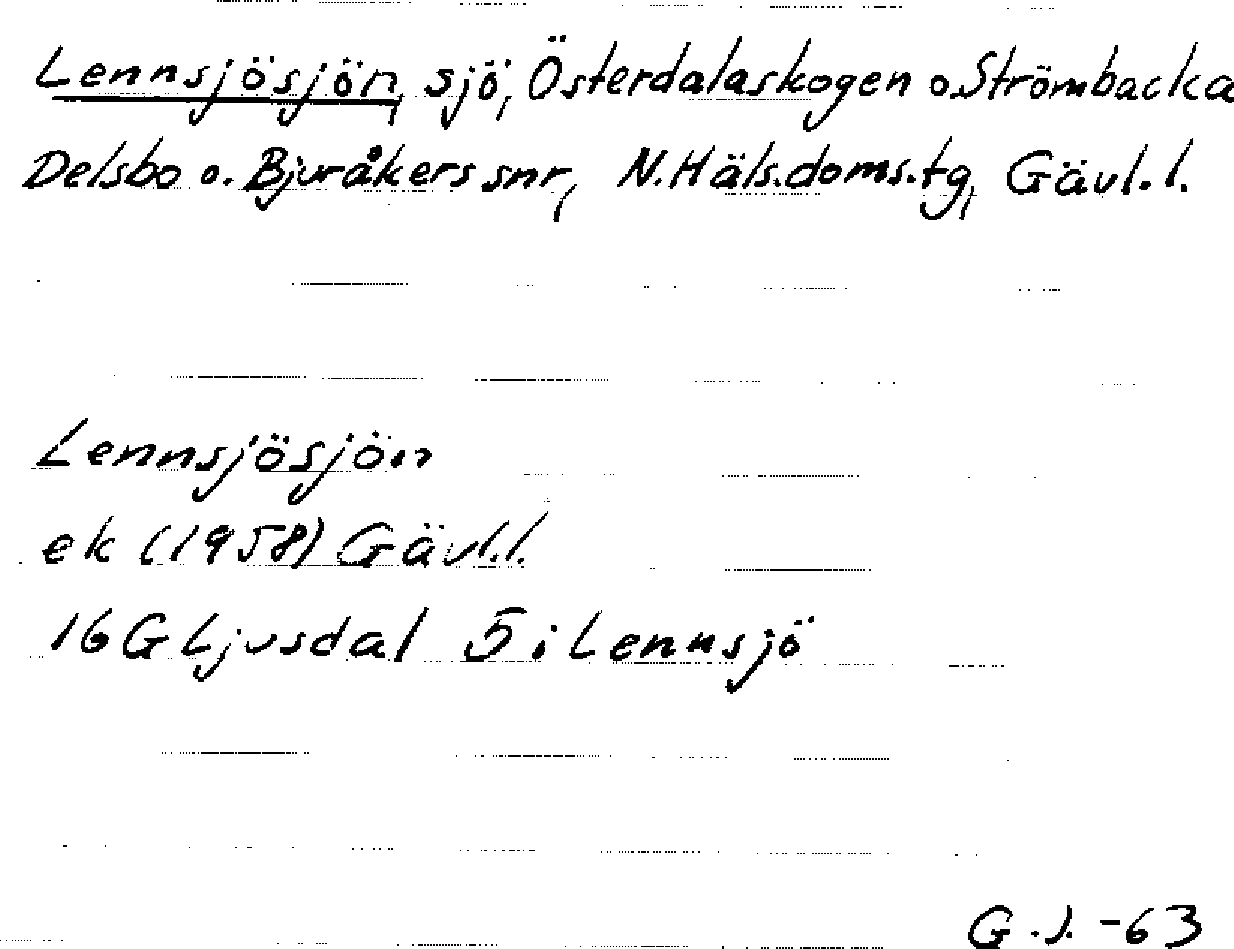 Lennsjösjön, sjö, Österdalaskogen o. Strömbacka
Delsbo o. Bjuråkers snr, N. Häls. doms. tg, Gävl. l.
Lennsjösjön
ek (1958) Gävl. l.
16 G Ljusdal 5 i Lennsjö
G. J. -63